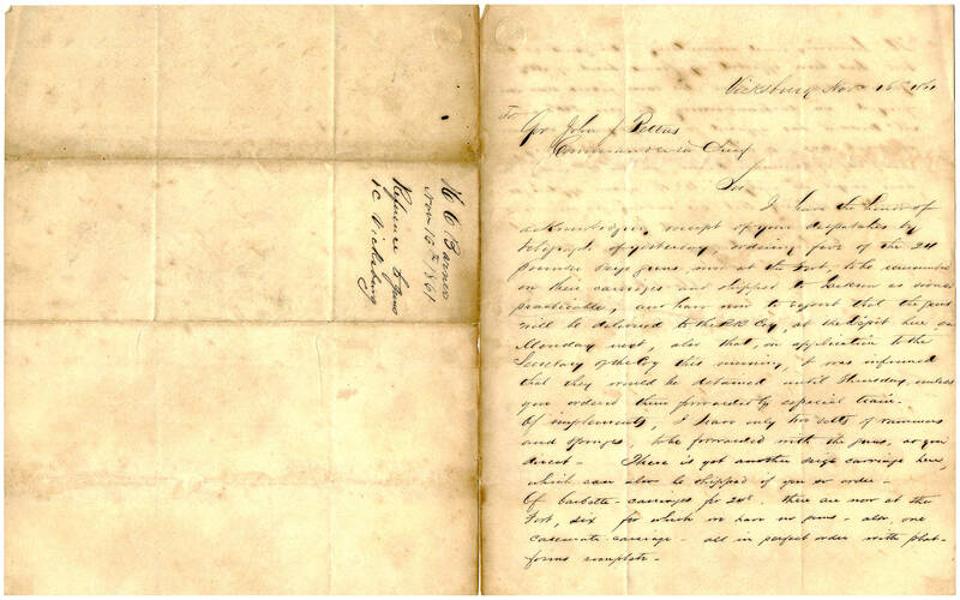 H C Barnes
Nov 16th 1861
Reference to guns
at Vicksburg
Vicksburg Nov 16th 1861
To
Gov John J Pettus
Commander in Chief
Sir
I have the honor of
acknowledging receipt of your despatches by
telegraph of yesterday, ordering five of the 24
pounder seige guns, now at the Fort, to be remounted
on their carriages and shipped to Jackson as soon as
practicable, and have now to report that the guns
will be delivered to the R R Coy, at the Depot here, on
Monday next, also that, on application to the
Secretary of the Coy this morning, I was informed
that they would be detained until Thursday, unless
you ordered them forwarded by especial train.
Of implements, I have only two setts of rammers
and sponges, to be forwarded with the guns, as you
direct - There is yet another seige carriage here,
which can also be shipped if you so order -
Of barbette - carriages for 24s. there are now at the
Fort, six for which we have no guns - also, one
casemate carriage - all in perfect order with plat-
forms complete -